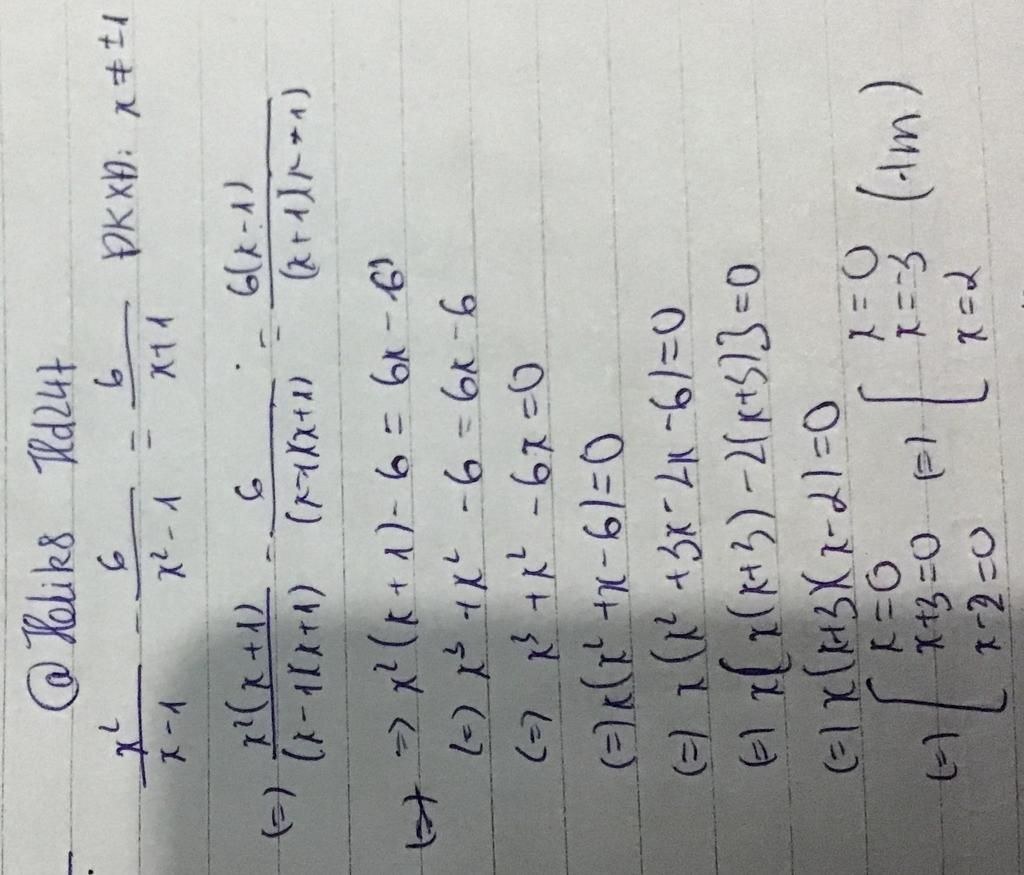 @ Heliks Hd247
x²/(x-1) - 6/(x²-1) = 6/(x+1) ĐKXĐ: x ≠ ±1
(=) x²(x+1)/(x-1)(x+1) - 6/(x-1)(x+1) = 6(x-1)/(x+1)(x-1)
=) x²(x+1) - 6 = 6x - 6
(=) x³ + x² - 6 = 6x - 6
(=) x³ + x² - 6x = 0
(=) x(x² + x - 6) = 0
(=) x(x² + 3x - 2x - 6) = 0
(=) x[x(x+3) - 2(x+3)] = 0
(=) x(x+3)(x-2) = 0
(=) [ x=0 x+3=0 x-2=0 (=) [ x=0 x=-3 x=2 (tm)